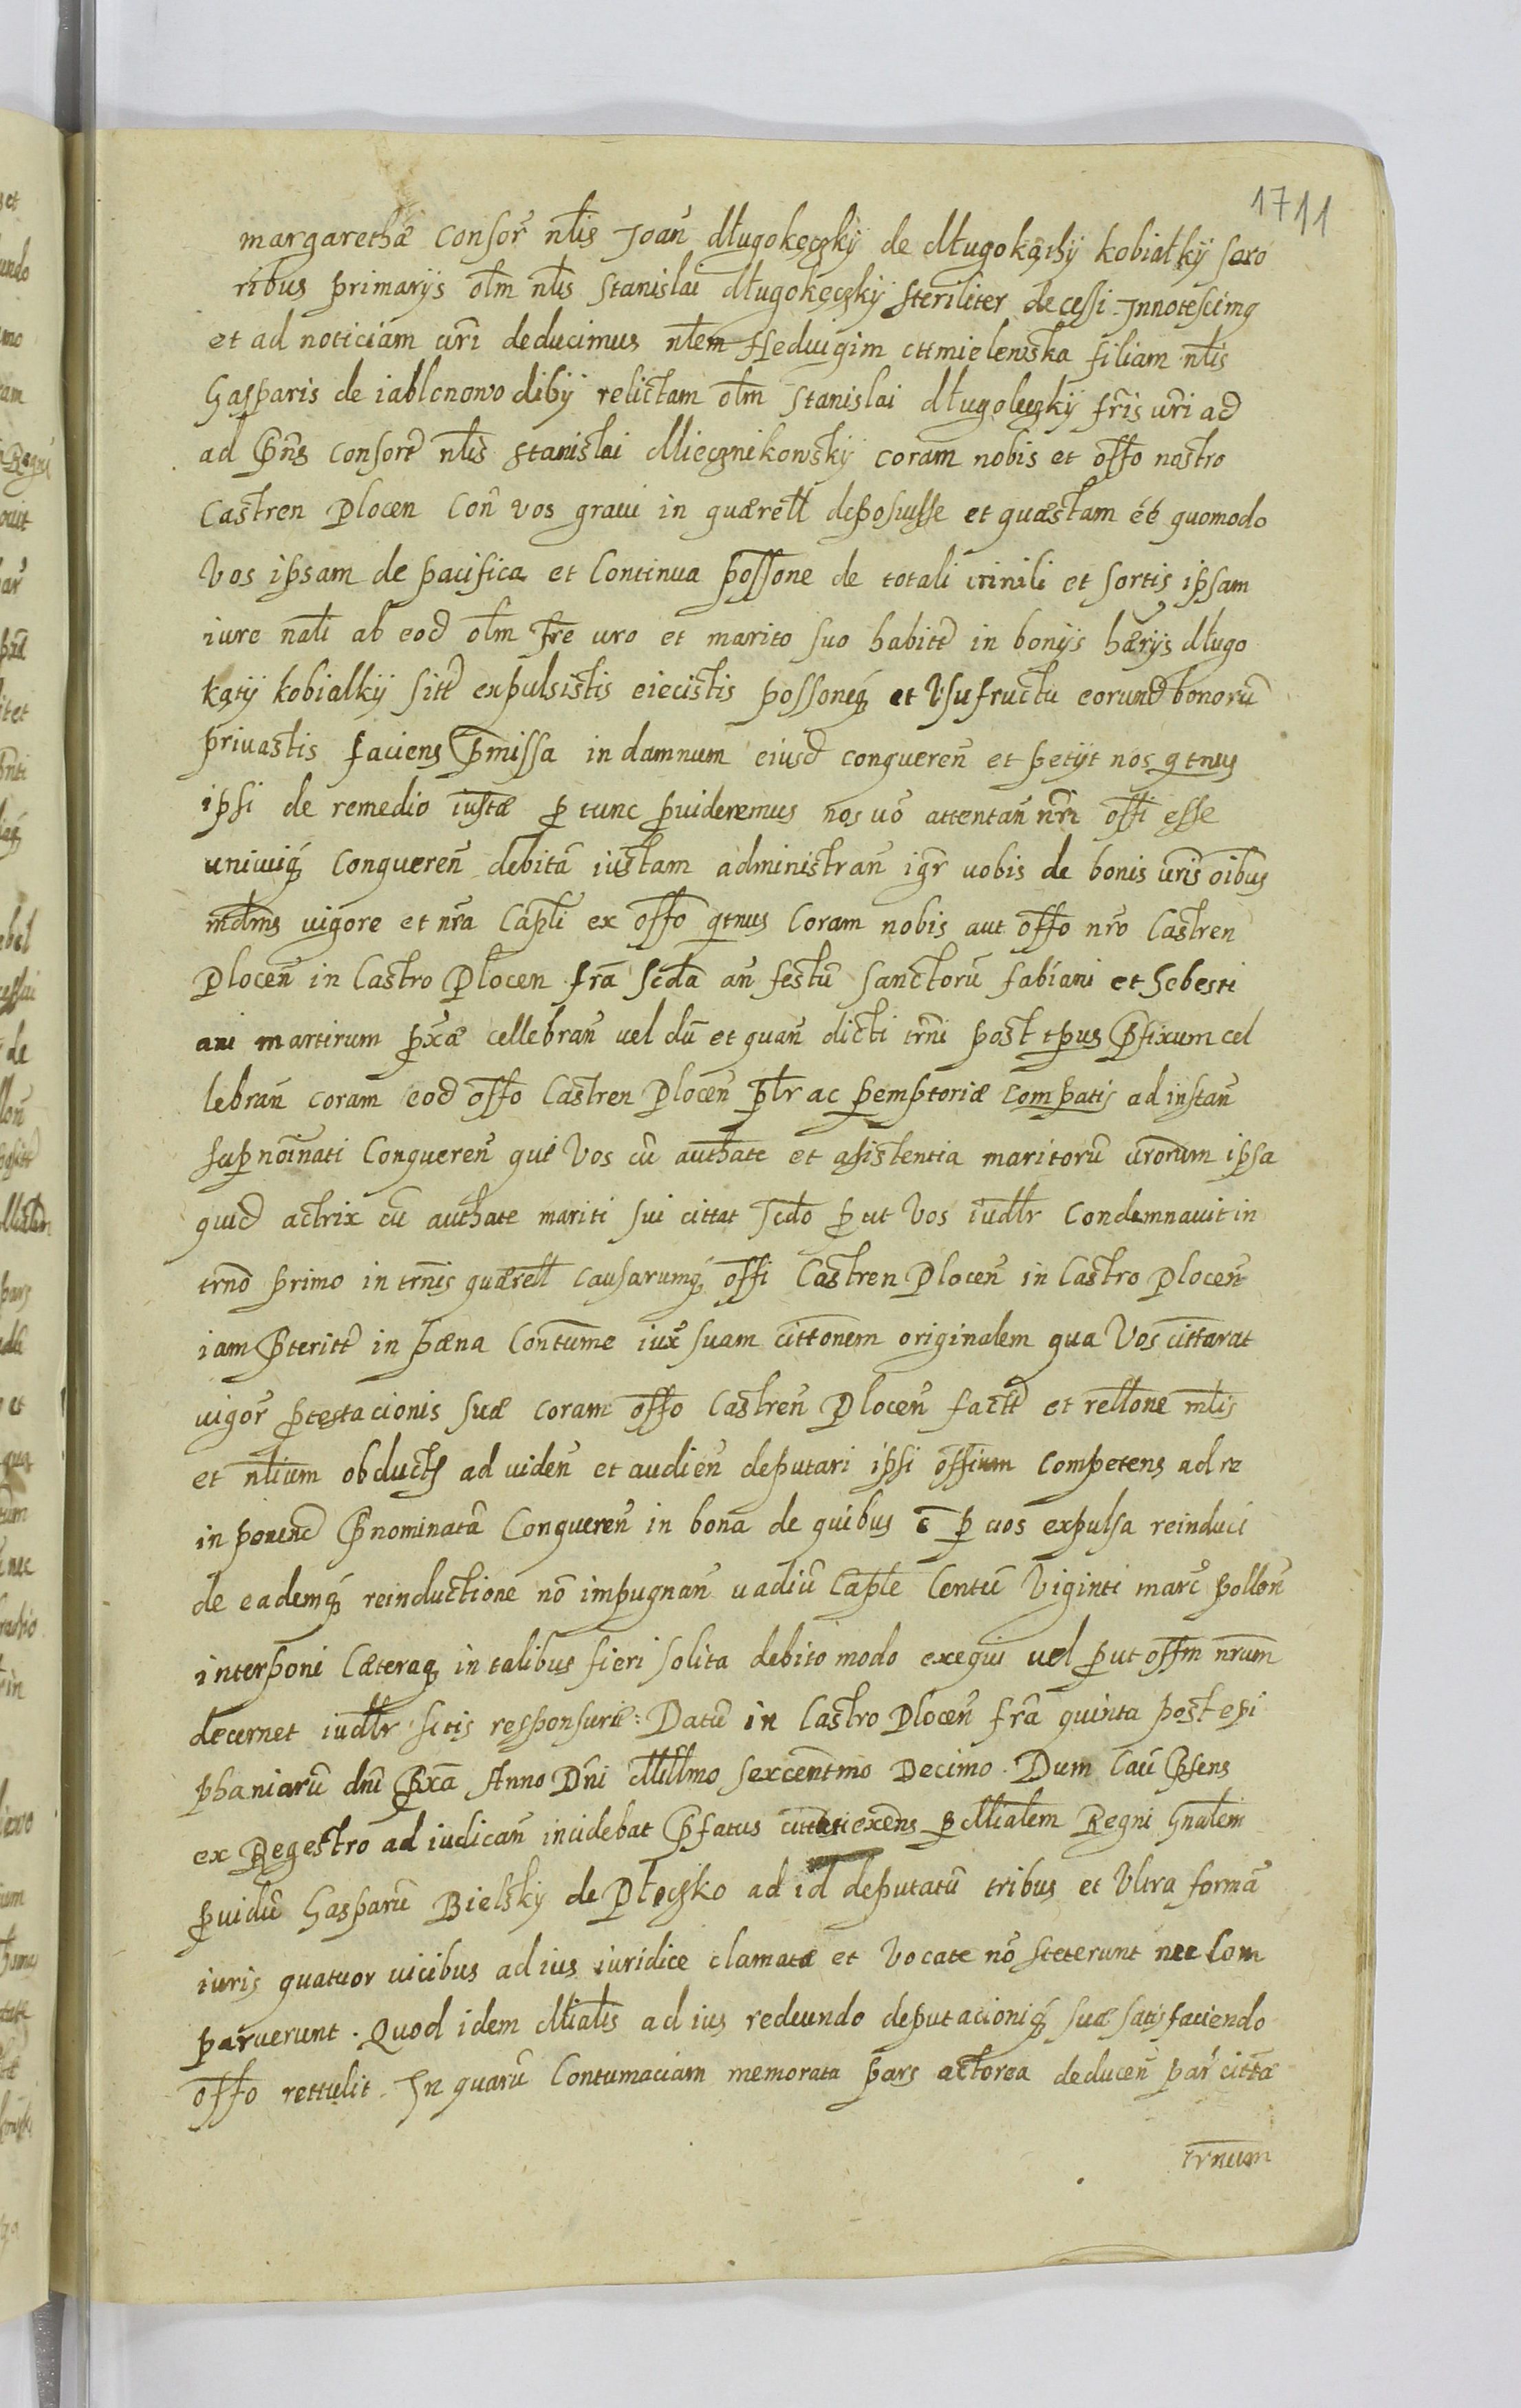 1711
margarethæ Consor̃ nłis Joañ długokęczky de długokąthy kobiałky soro
ribus primarys ołm nłis Stanislai długokęczky steriliter decessi. Innotescimg
et ad noticiam uri deducimus nłem Hedvigim Chmielewska filiam nłis
Gasparis de iablonowo diby relictam ołm Stanislai długokęczky fris uri ad
ad pñs consort nłis Stanislai Miecznikowsky coram nobis et offo nostro
Castren Plocen Coñ vos graui in quærell deposuisse et quæstam éé quomodo
Vos ipsam de pacifica et Continua possone de totali crinili et sortis ipsam
iure nałi ab eod ołm fre uro et marito suo habitt in bonys hærys długo
kąty kobialky sitt expulsistis eiecistis possoneq et Vsufructu eorund bonorũ
priuastis faciens pmissa in damnum eiusd conquereñ et petyt nos qtnus
ipsi de remedio iustæ p tunc puideremus nos uõ attentañ nri offi esse
uniuiq conquereñ debitã iustam administrañ igr uobis de bonis uris oibus
mdms uigore et nra Capłi ex offo qtnus Coram nobis aut offo nro Castren
Ploceñ in Castro Plocen fra scda añ festũ sanctorũ fabiani et Sebesti
ani martirum pxæ cellebrañ uel dũ et quañ dicti trni post tpus pfixum cel
lebrañ coram eod offo Castren Ploceñ płr ac pemptoriæ compatis ad instañ
sup noinati Conquereñ qui Vos cũ authate et asistentia maritorũ urorum ipsa
quid actrix cũ authate mariti sui cittat scdo p ut Vos iudłr Condemnauit in
trno primo in trnis quærell causarumq offi Castren Ploceñ in Castro Ploceñ
iam pteritt in pæna Contume iux suam cittonem originalem qua Vos cittarat
uigor̃ ptestacionis suæ coram offo Castreñ Ploceñ factt et rełłone młis
et nłium obducts ad uideñ et audieñ deputari ipsi offium Competens ad re
in ponend pnominatã Conquereñ in bona de quibus ẽ p uos expulsa reinduci
de eademq reinductione nõ impugnañ uadiũ Capłe Centũ Viginti marc polloñ
interponi Cæteraq in talibus fieri solita debito modo exequi uel put offm nrum
decernet iudłr sitis responsuræ: Datũ in Castro Ploceñ fra quinta post epi
phaniarũ dni pxa Anno Dni Milłmo sexcentmo Decimo. Dum Caũ psens
ex Regestro ad iudicañ incidebat pfatus exens p Mialem Regni Gnalem
puidũ Gasparũ Bielsky de Płoczko ad id deputatũ tribus et Vltra formã
iuris quatuor uicibus ad ius iuridice clamatæ et Vocate nõ steterunt nec Com
paruerunt. Quod idem Mialis ad ius redeundo deputacioniq suæ satisfaciendo
offo rettulit. In quarũ Contumaciam memorata pars actorea deduceñ par̃ citta
trnum